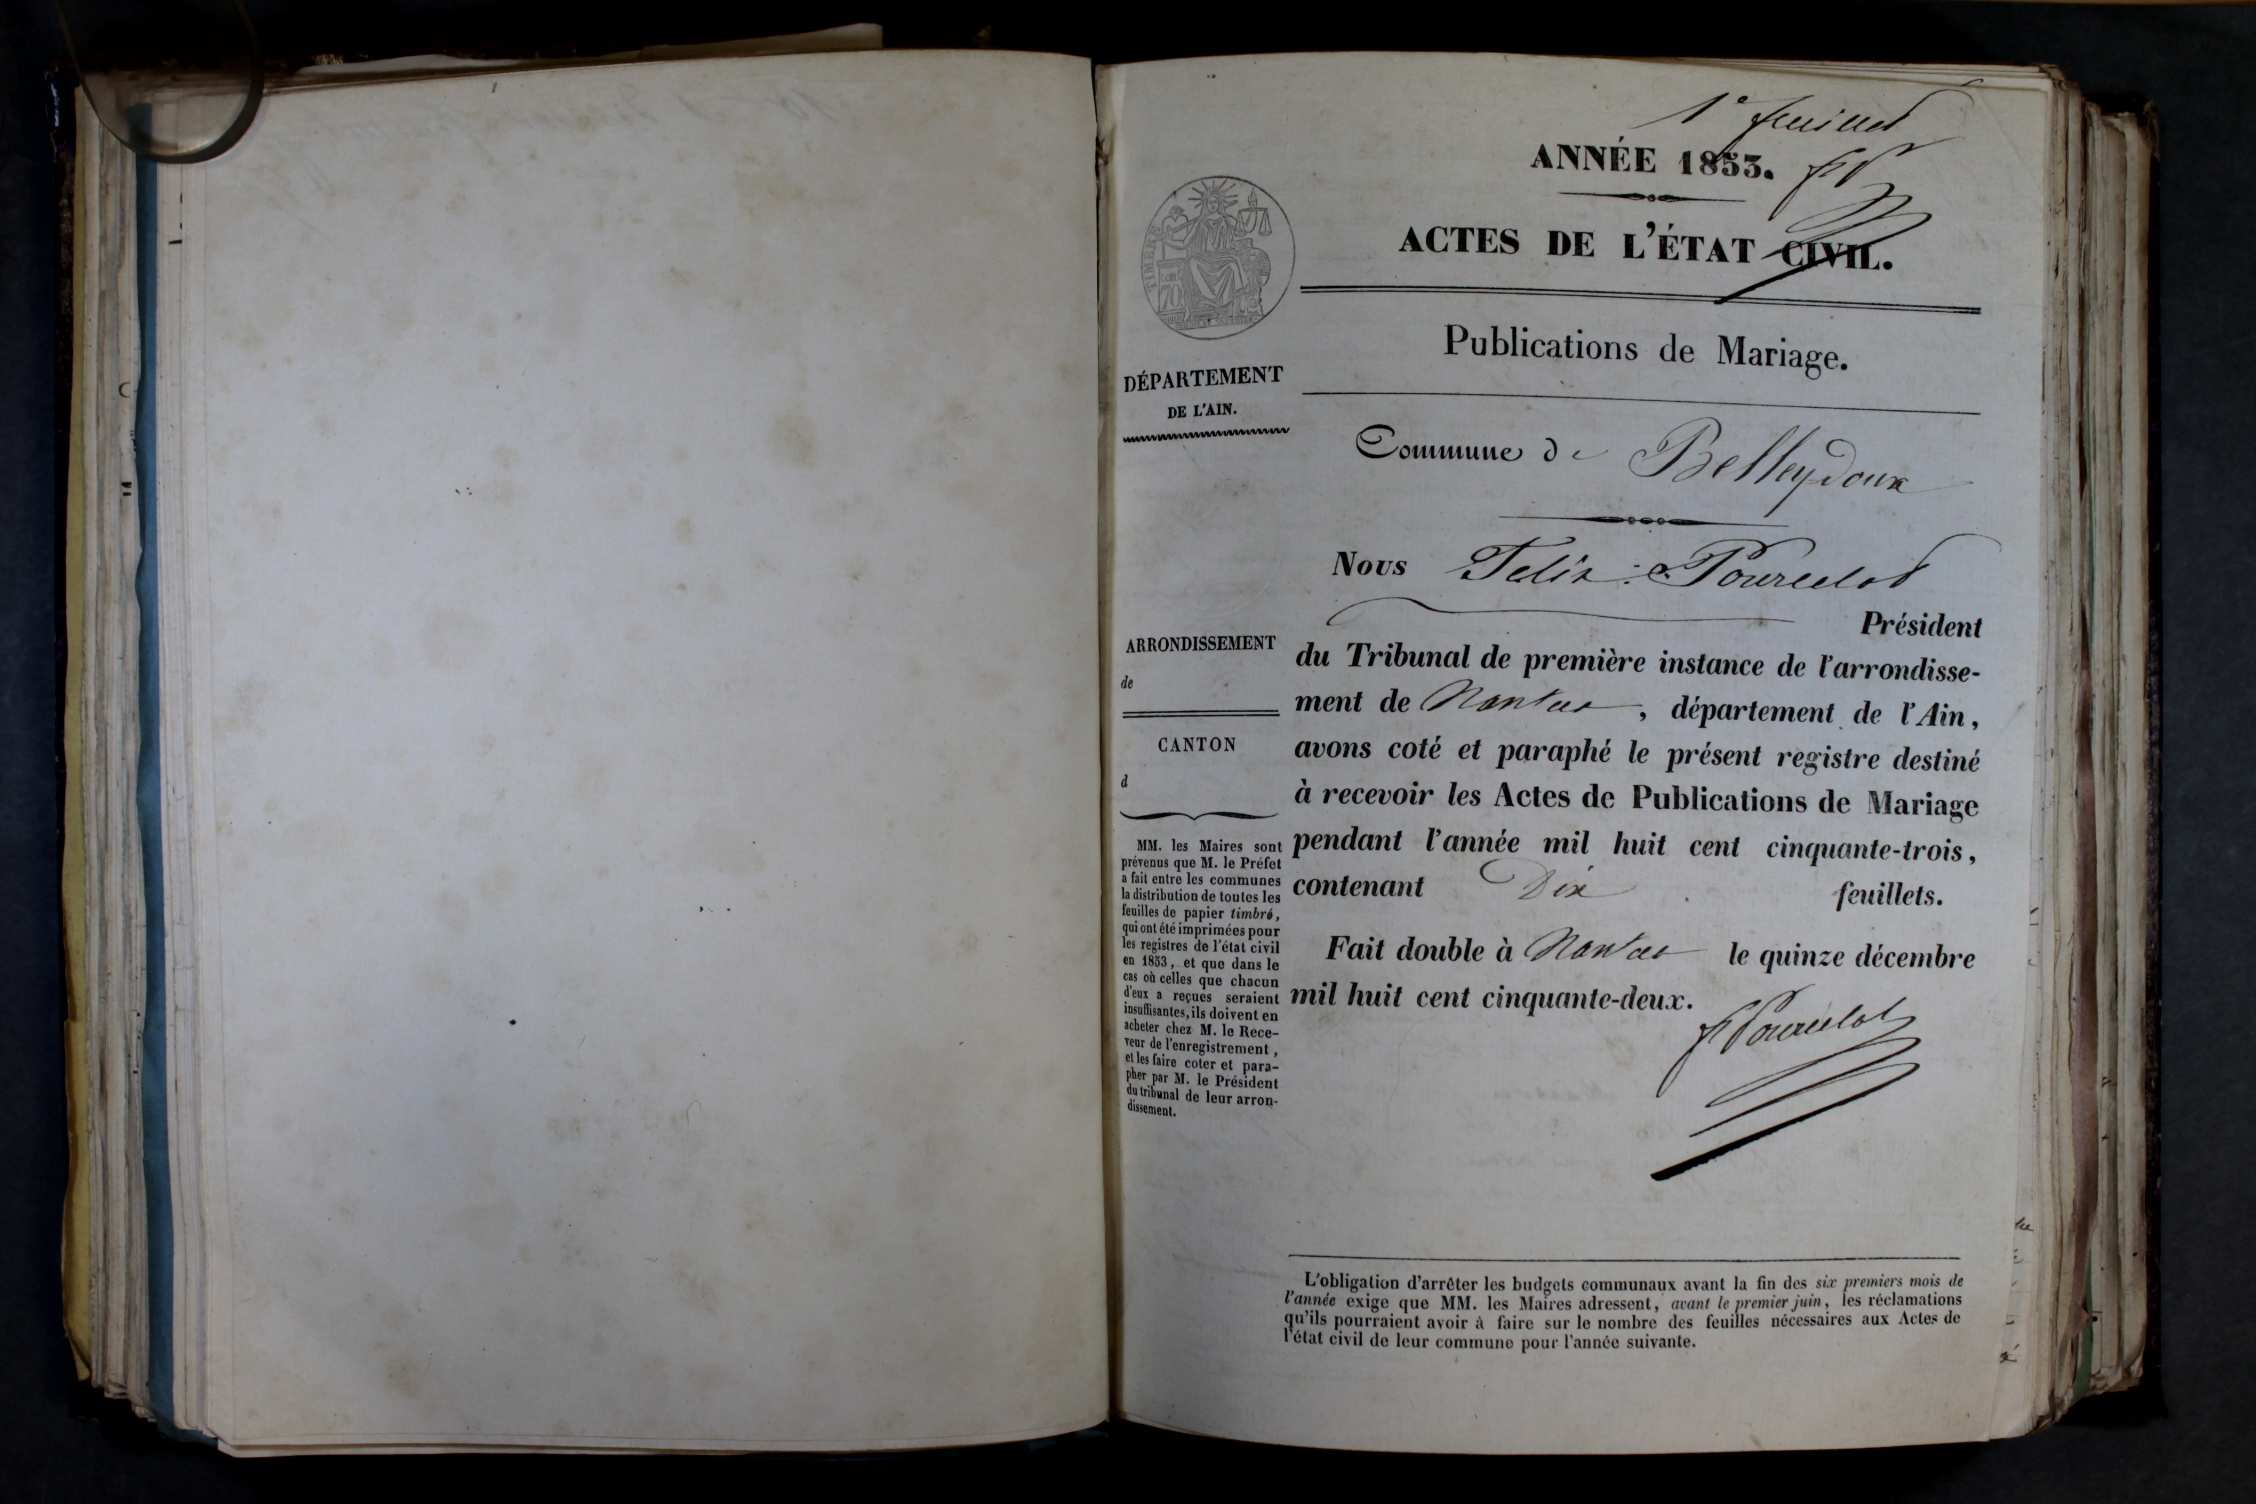 1e feuillet
ANNÉE 1853.
ACTES DE L'ÉTAT CIVIL.
Publications de Mariage.
DÉPARTEMENT
DE L'AIN.
Commune de Belleydoux
Nous Felix Pourcelot
Président
du Tribunal de première instance de l'arrondisse-
ment de Nantua, département de l'Ain,
avons coté et paraphé le présent registre destiné
à recevoir les Actes de Publications de Mariage
pendant l'année mil huit cent cinquante-trois,
contenant Dix feuillets.
Fait double à Nantua le quinze décembre
mil huit cent cinquante-deux.
F Pourcelot
ARRONDISSEMENT
de
CANTON
d
MM. les Maires sont
prévenus que M. le Préfet
a fait entre les communes
la distribution de toutes les
feuilles de papier timbré,
qui ont été imprimées pour
les registres de l'état civil
en 1853, et que dans le
cas où celles que chacun
d'eux a reçues seraient
insuffisantes, ils doivent en
acheter chez M. le Rece-
veur de l'enregistrement,
et les faire coter et para-
pher par M. le Président
du tribunal de leur arron-
dissement.
L'obligation d'arrêter les budgets communaux avant la fin des six premiers mois de
l'année exige que MM. les Maires adressent, avant le premier juin, les réclamations
qu'ils pourraient avoir à faire sur le nombre des feuilles nécessaires aux Actes de
l'état civil de leur commune pour l'année suivante.